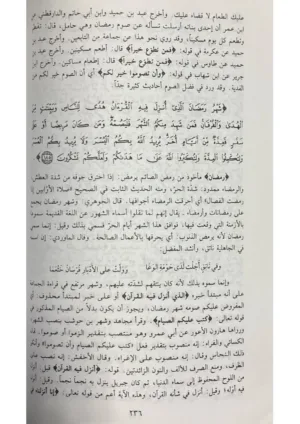 عليك الطعام لا قضاء عليك. وأخرج عبد بن حميد وابن أبي حاتم والدارقطني عن
ابن عمر أن إحدى بناته أرسلت تسأله عن صوم رمضان وهي حامل، قال: تفطر
وتطعم كل يوم مسكيناً، وقد روي نحو هذا عن جماعة من التابعين. وأخرج عبد بن
حميد عن عكرمة في قوله: ﴿فمن تطوع خيراً﴾ قال: أطعم مسكينين. وأخرج عبد بن
حميد عن طاوس في قوله: ﴿فمن تطوع خيراً﴾ قال: إطعام مساكين. وأخرج ابن
جرير عن ابن شهاب في قوله: ﴿وأن تصوموا خير لكم﴾ أي أن الصوم خير لكم من
الفدية. وقد ورد في فضل الصوم أحاديث كثيرة جداً.
﴿شَهْرُ رَمَضَانَ الَّذِي أُنْزِلَ فِيهِ الْقُرْآنُ هُدًى لِلنَّاسِ وَبَيِّنَاتٍ مِنَ
الْهُدَى وَالْفُرْقَانِ فَمَنْ شَهِدَ مِنْكُمُ الشَّهْرَ فَلْيَصُمْهُ وَمَنْ كَانَ مَرِيضًا أَوْ عَلَى سَفَرٍ
فَعِدَّةٌ مِنْ أَيَّامٍ أُخَرَ يُرِيدُ اللَّهُ بِكُمُ الْيُسْرَ وَلَا يُرِيدُ بِكُمُ الْعُسْرَ
وَلِتُكْمِلُوا الْعِدَّةَ وَلِتُكَبِّرُوا اللَّهَ عَلَى مَا هَدَاكُمْ وَلَعَلَّكُمْ تَشْكُرُونَ
﴿رمضان﴾ مأخوذ من رمض الصائم يرمض: إذا احترق جوفه من شدة العطش
والرمضاء ممدود: شدّة الحرّ، ومنه الحديث الثابت في الصحيح «صلاة الأوابين إذا
رمضت الفصال» أي أحرقت الرمضاء أجوافها. قال الجوهري: وشهر رمضان يجمع
على رمضانات وأرمضاء. يقال إنهم لما نقلوا أسماء الشهور عن اللغة القديمة سموها
بالأزمنة التي وقعت فيها، فوافق هذا الشهر أيام الحرّ فسمي بذلك وقيل: إنما سمي
رمضان لأنه يرمض الذنوب: أي يحرقها بالأعمال الصالحة. وقال الماوردي: إن اسمه
في الجاهلية ناتق، وأنشد المفضل:
وفي ناتق أجلت لدى حومة الوغا وولت على الأدبار فرسان خثعما
وإنما سموه بذلك لأنه كان ينتقهم لشدته عليهم، وشهر مرتفع في قراءة الجماعة
على أنه مبتدأ خبره: ﴿الذي أنزل فيه القرآن﴾ أو على خبر لمبتدأ محذوف: أي
المفروض عليكم صومه شهر رمضان، ويجوز أن يكون بدلاً من الصيام المذكور في
قوله تعالى: ﴿كتب عليكم الصيام﴾. وقرأ مجاهد وشهر بن حوشب بنصب الشهر
ورواها هارون الأعور عن أبي عمرو وهو منتصب بتقدير الزموا أو صوموا. وقال
الكسائي والفراء: إنه منصوب بتقدير فعل ﴿كتب عليكم الصيام وأن تصوموا﴾
ذلك النحاس وقال: إنه منصوب على الإغراء. وقال الأخفش: إنه نصب على
الظرف، ومنع الصرف للألف والنون الزائدتين. قوله: ﴿أنزل فيه القرآن﴾ قيل: أنزل
من اللوح المحفوظ إلى سماء الدنيا، ثم كان جبريل ينزل به نجماً نجماً. وقيل: أنزل
فيه أوّله؛ وقيل: أنزل في شأنه القرآن، وهذه الآية أعم من قوله تعالى: ﴿إنا أنزلناه في
٢٣٦